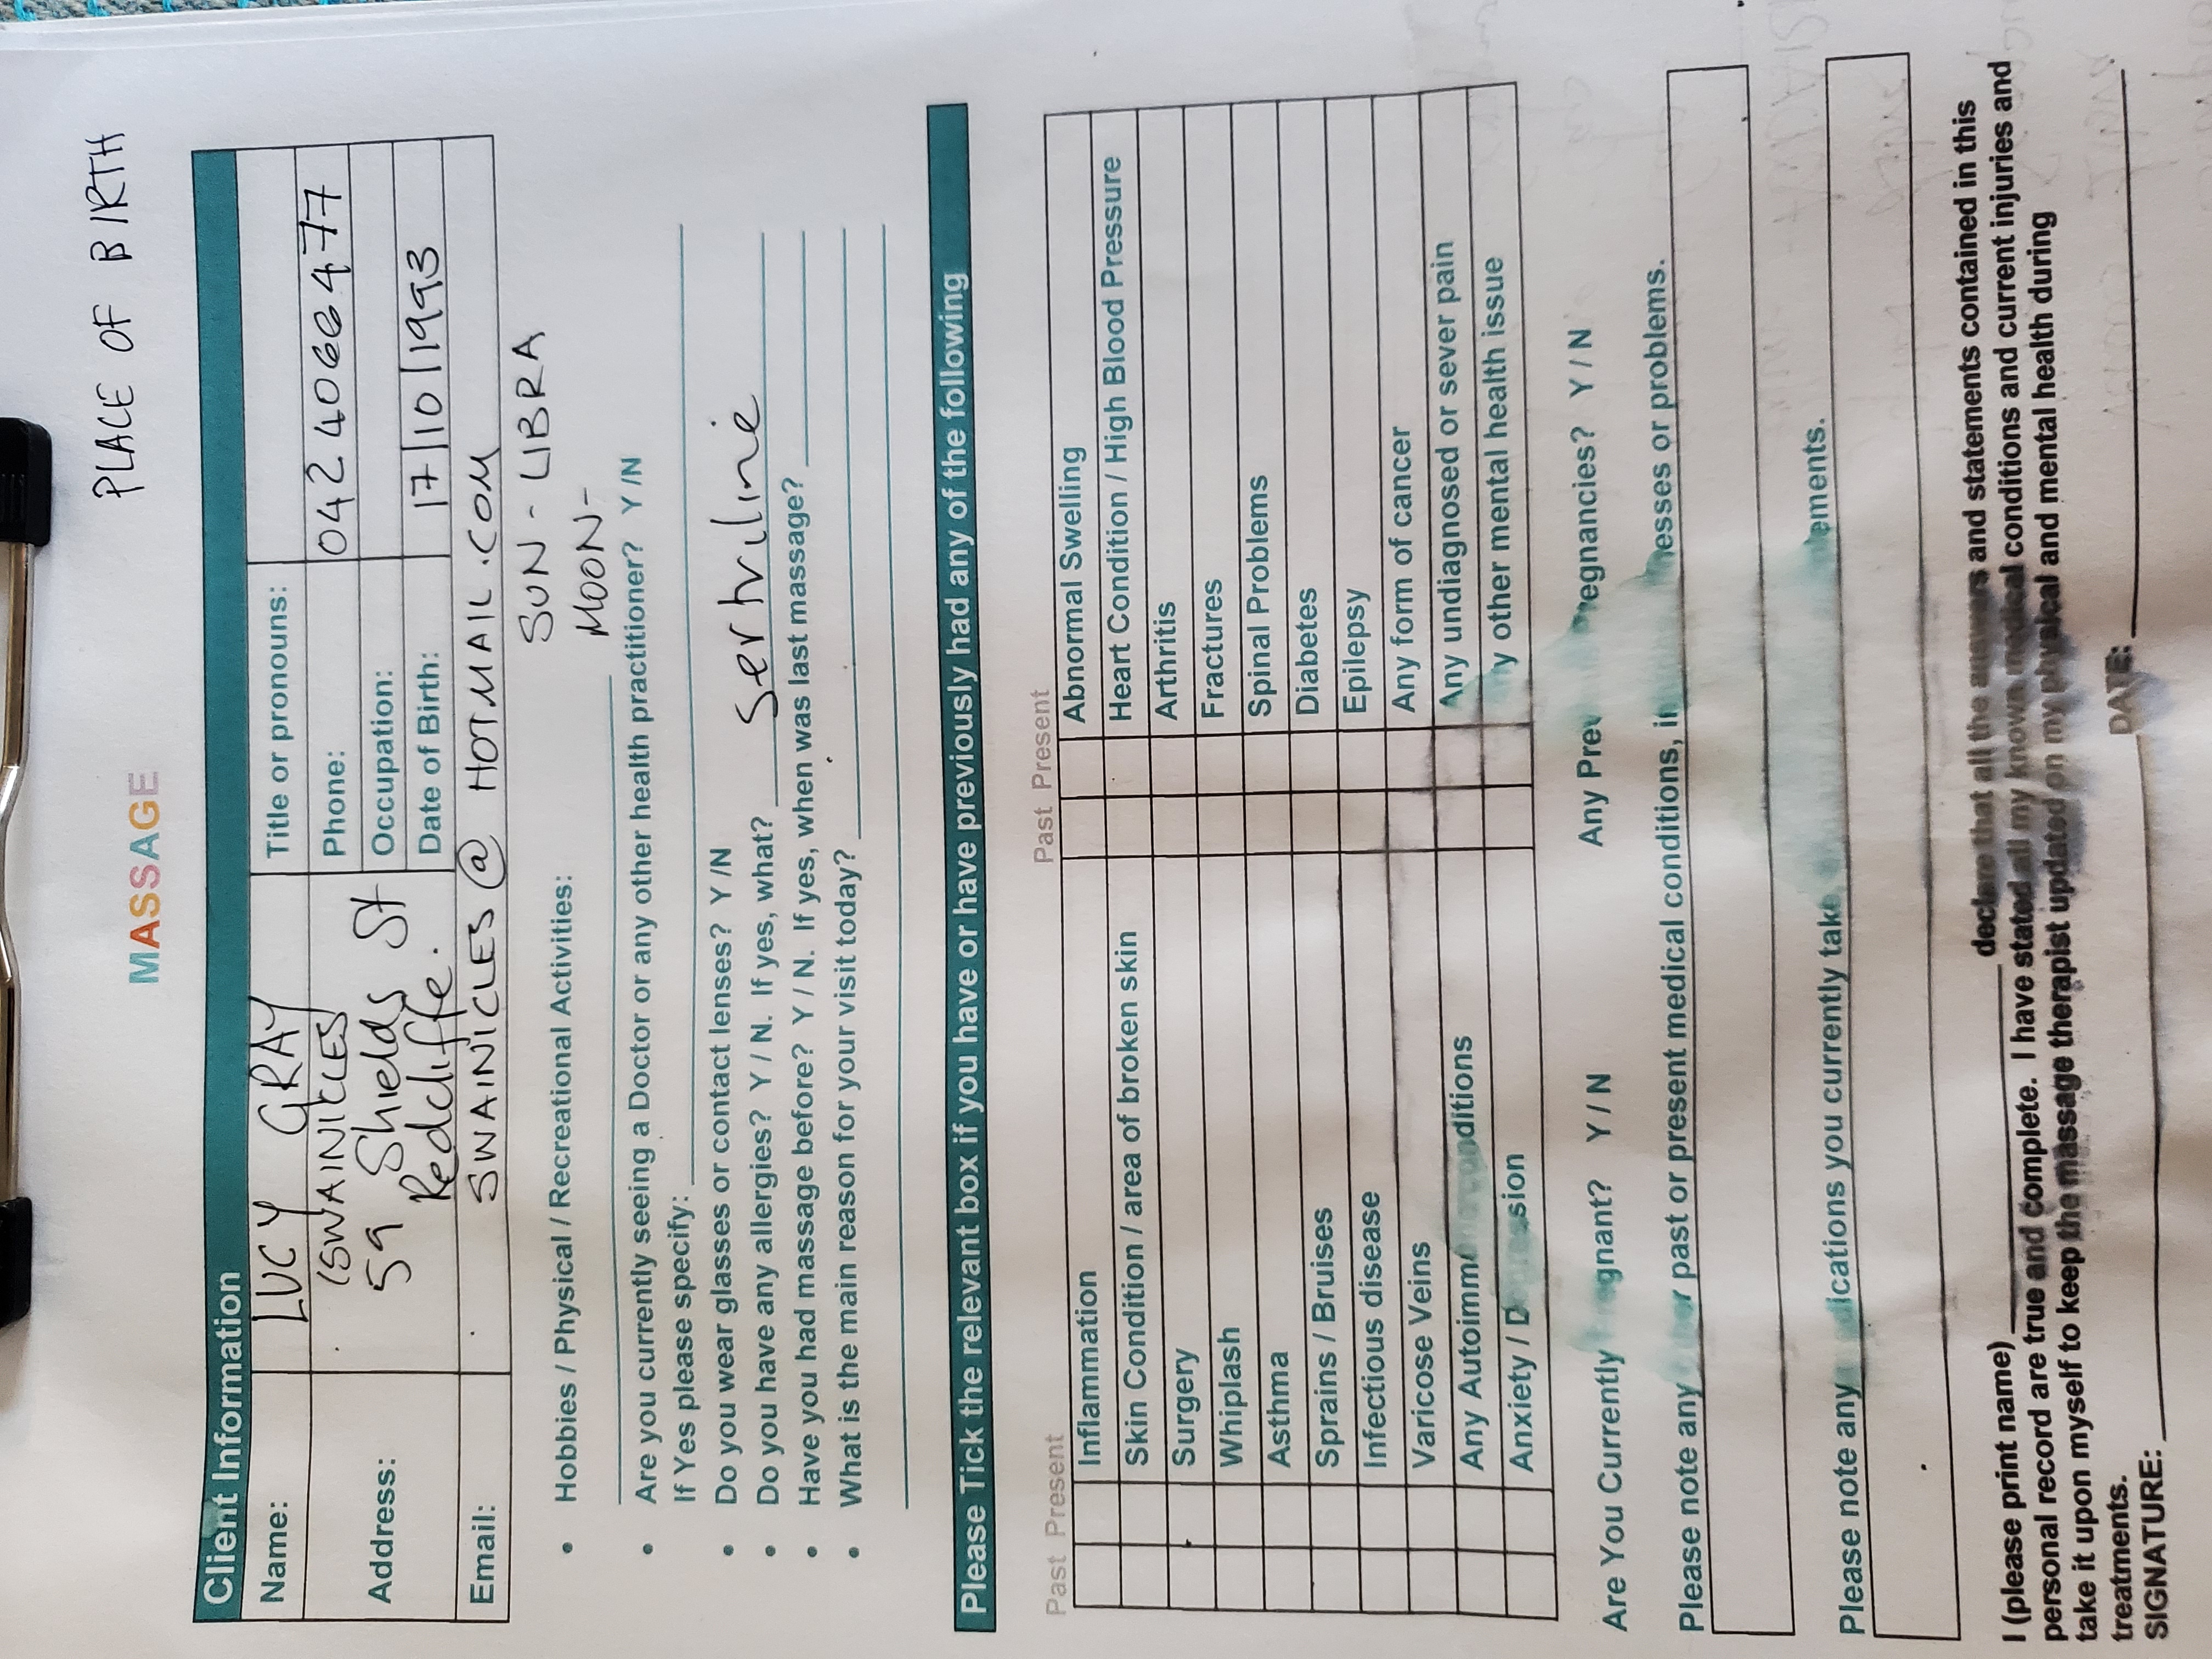 PLACE OF BIRTH
MASSAGE
Client Information
Name: LUCY GRAY Title or pronouns:
(SWAINICLES) Phone: 0424066477
Address: 59 Shields St Occupation:
Redcliffe. Date of Birth: 17/10/1993
Email: SWAINICLES@HOTMAIL.COM
SUN - LIBRA
MOON -
• Hobbies / Physical / Recreational Activities:
• Are you currently seeing a Doctor or any other health practitioner? Y/N
If Yes please specify:
• Do you wear glasses or contact lenses? Y/N
• Do you have any allergies? Y / N. If yes, what? Sertriline
• Have you had massage before? Y / N. If yes, when was last massage?
• What is the main reason for your visit today?
Please Tick the relevant box if you have or have previously had any of the following
Past Present Past Present
Inflammation Abnormal Swelling
Skin Condition / area of broken skin Heart Condition / High Blood Pressure
Surgery Arthritis
Whiplash Fractures
Asthma Spinal Problems
Sprains / Bruises Diabetes
Infectious disease Epilepsy
Varicose Veins Any form of cancer
Any Autoimm onditions Any undiagnosed or sever pain
Anxiety / D sion y other mental health issue
Are You Currently gnant? Y / N Any Prev egnancies? Y / N
Please note any past or present medical conditions, i esses or problems.
Please note any ications you currently take ements.
I (please print name) declare that all the and statements contained in this
personal record are true and complete. I have stated all my known medical conditions and current injuries and
take it upon myself to keep the massage therapist updated on my physical and mental health during
treatments.
SIGNATURE: DATE: